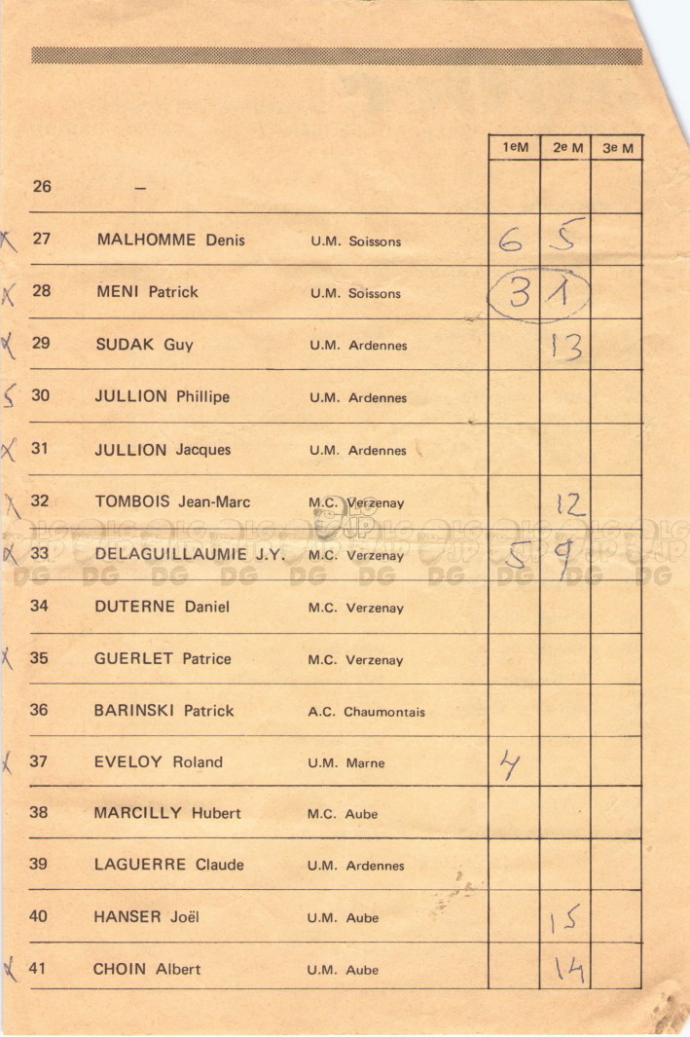 1eM 2e M 3e M
26 –
x 27 MALHOMME Denis U.M. Soissons 6 5
x 28 MENI Patrick U.M. Soissons 3 1
x 29 SUDAK Guy U.M. Ardennes 13
S 30 JULLION Phillipe U.M. Ardennes
x 31 JULLION Jacques U.M. Ardennes
x 32 TOMBOIS Jean-Marc M.C. Verzenay 12
x 33 DELAGUILLAUMIE J.Y. M.C. Verzenay 5 9
34 DUTERNE Daniel M.C. Verzenay
x 35 GUERLET Patrice M.C. Verzenay
36 BARINSKI Patrick A.C. Chaumontais
x 37 EVELOY Roland U.M. Marne 4
38 MARCILLY Hubert M.C. Aube
39 LAGUERRE Claude U.M. Ardennes
40 HANSER Joël U.M. Aube 15
x 41 CHOIN Albert U.M. Aube 14